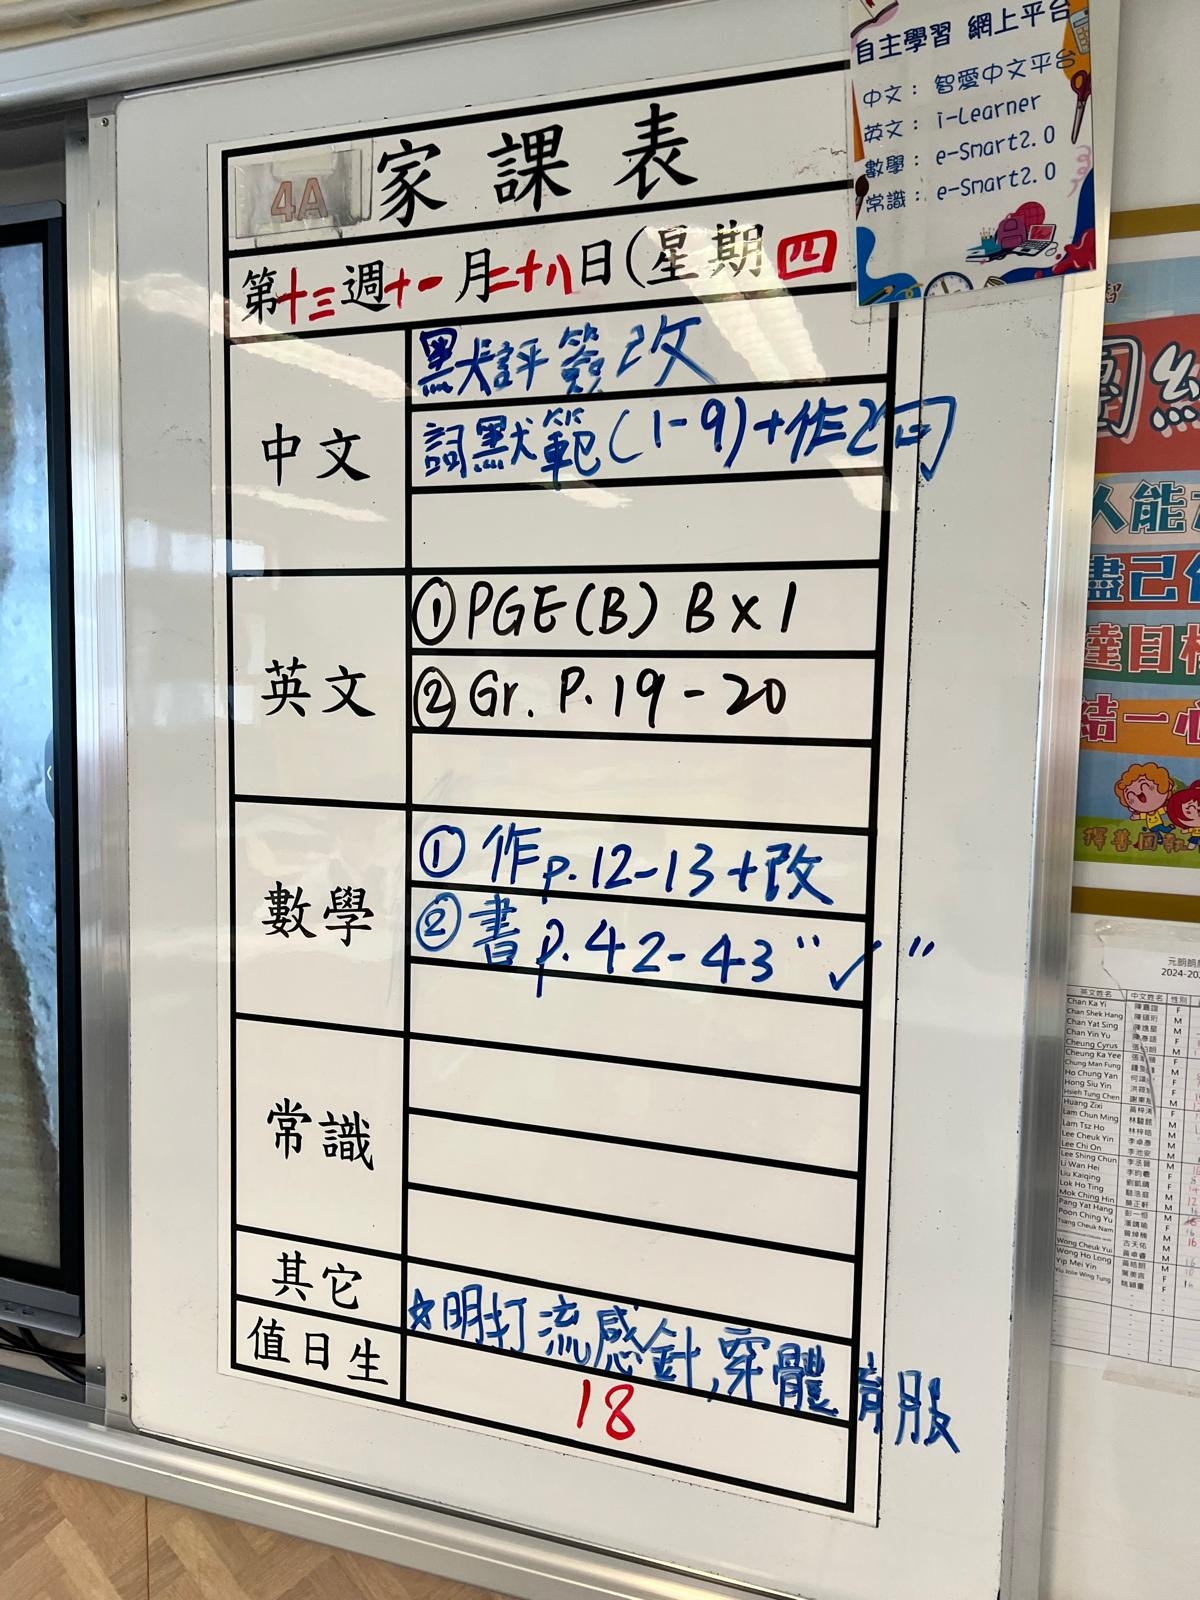 自主學習 網上平台
中文： 智愛中文平台
英文： i-Learner
數學： e-Smart2.0
常識： e-Smart2.0
4A 家課表
第十三週十一月二十八日(星期四
中文
默評簽改
詞默範(1-9)+作2句
英文
① PGE(B) B x 1
② Gr. P.19-20
數學
① 作p.12-13+改
② 書p.42-43 "✓"
常識
其它
☆明打流感針,穿體育服
值日生
18
人能
盡己
達目標
結一心
擇善固執
2024-20
英文姓名 中文姓名 性別
Chan Ka Yi F
Chan Shek Hang M
Chan Yat Sing M
Chan Yin Yu F
Cheung Cyrus M
Cheung Ka Yee F
Chung Man Fung M
Ho Chung Yan
Hong Siu Yin F
Hsieh Tung Chen M
Huang Zixi F
Lam Chun Ming M
Lam Tsz Ho M
Lee Cheuk Yin M
Lee Chi On M
Lee Shing Chun M
Li Wan Hei F
Liu Kaiqing F
Lok Ho Ting M
Mok Ching Hin M
Pang Yat Hang M
Poon Ching Yu F
Tsang Cheuk Nam M
Wong Cheuk Yui M
Wong Ho Long M
Yip Mei Yin F
Yiu Jolie Wing Tung F